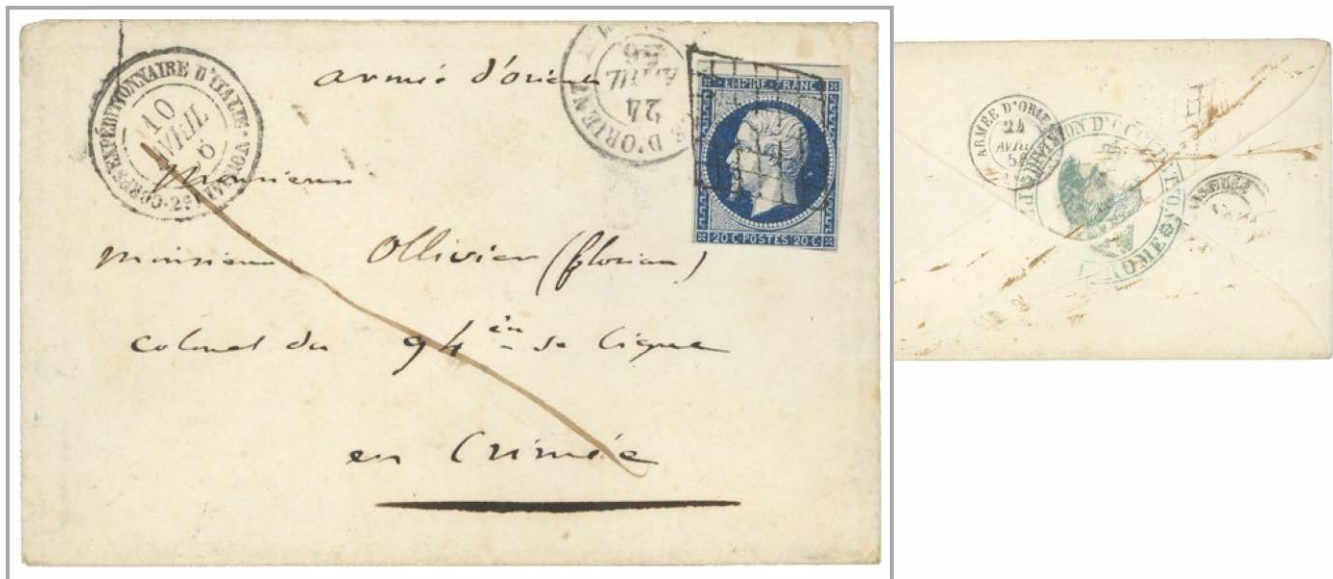 CORPS EXPÉDITIONNAIRE D'ITALIE
10
AVRIL
56
armée d'orient
24
AVRIL
56
D'ORIENT
EMPIRE FRANC
20 C POSTES 20 C
Monsieur
Monsieur Ollivier (florian)
colonel du 94 de ligne
en Crimée
ARMÉE D'ORIENT
24
AVRIL
ROME